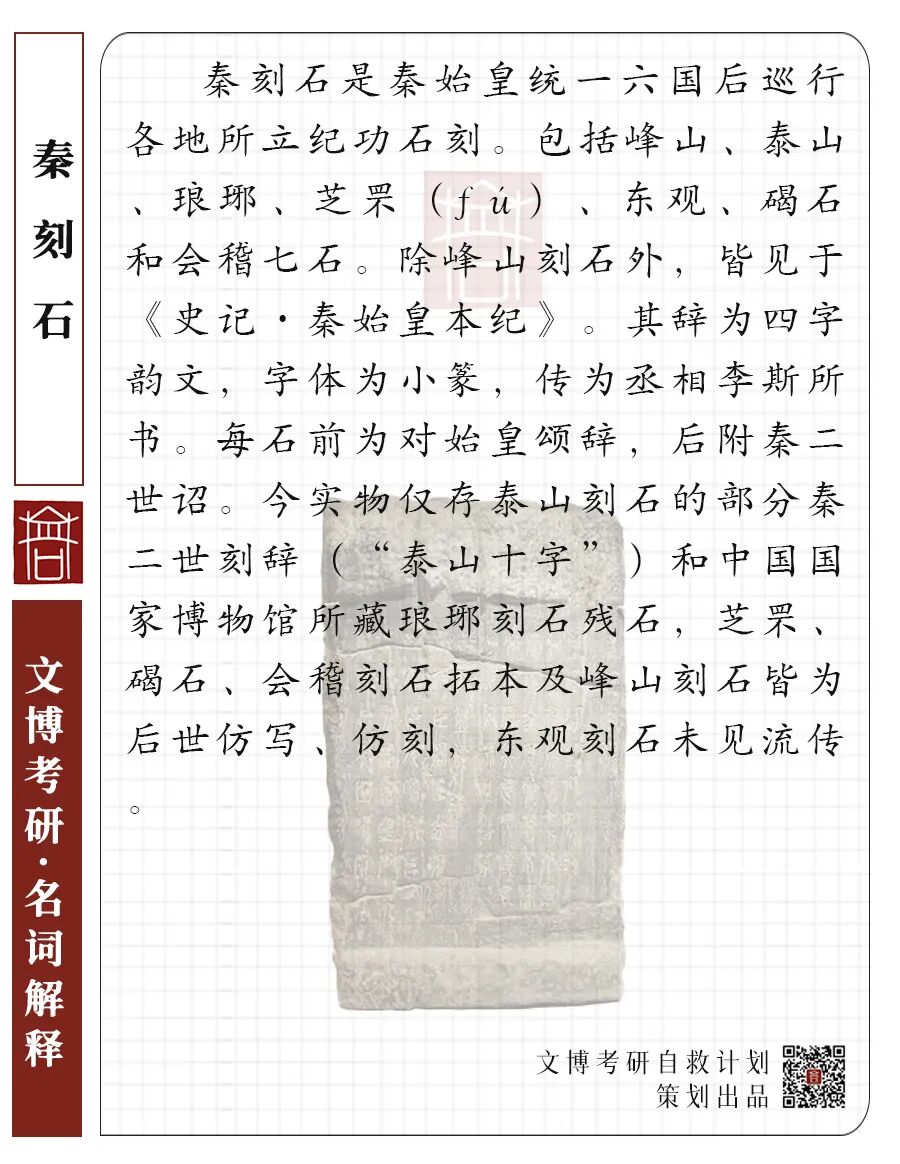 秦刻石
文博考研·名词解释
秦刻石是秦始皇统一六国后巡行
各地所立纪功石刻。包括峰山、泰山
、琅琊、芝罘（fú）、东观、碣石
和会稽七石。除峰山刻石外，皆见于
《史记·秦始皇本纪》。其辞为四字
韵文，字体为小篆，传为丞相李斯所
书。每石前为对始皇颂辞，后附秦二
世诏。今实物仅存泰山刻石的部分秦
二世刻辞（“泰山十字”）和中国国
家博物馆所藏琅琊刻石残石，芝罘、
碣石、会稽刻石拓本及峰山刻石皆为
后世仿写、仿刻，东观刻石未见流传
。
文博考研自救计划
策划出品